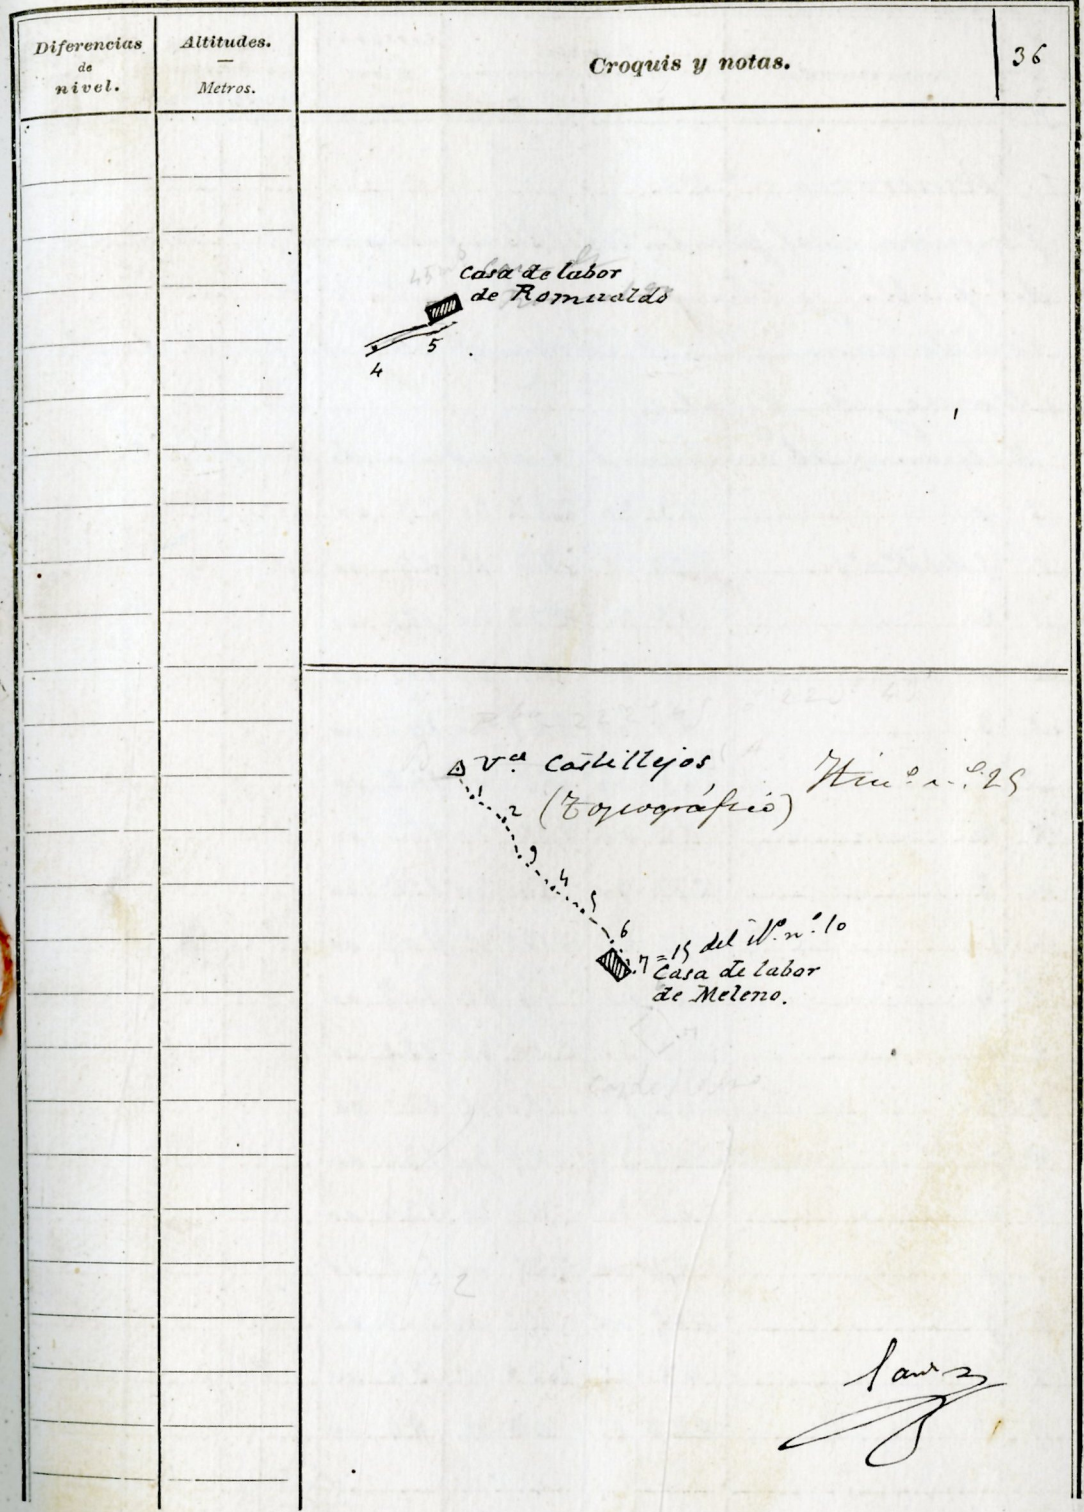 Diferencias
de
nivel.
Altitudes.
Metros.
Croquis y notas.
36
Casa de labor
de Romualdo
5
4
Vᶜᵉ Castillejos
(topográfico)
Itinº n.º 25
1
2
3
4
5
6
7=15 del Itº nº 10
Casa de labor
de Meleno.